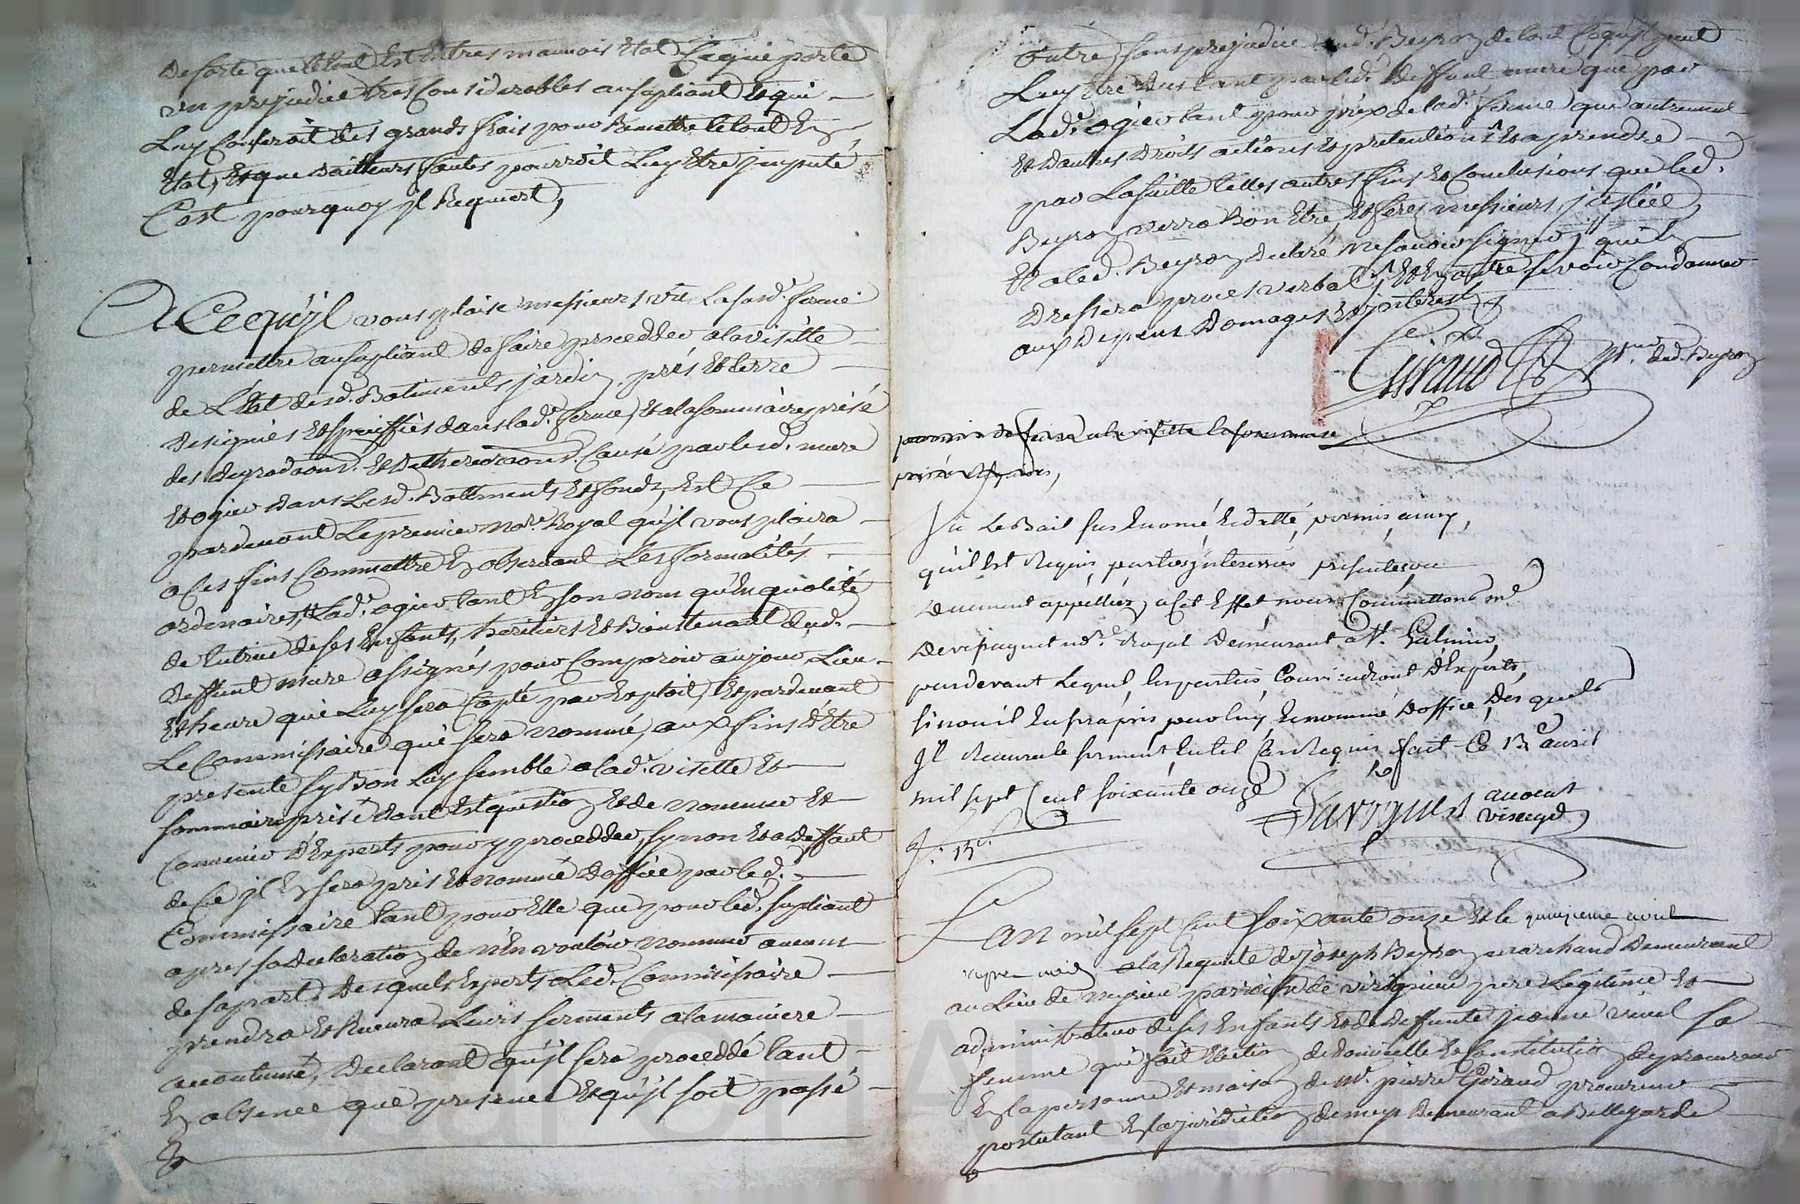 De sorte que le tout Est En tres mauvois Etat, Ce qui porte
un prejudice tres Considerobles au supliant Et qui
Luy Couseroit des grands frais pour Remettre le tout En
Etat, Et que d'ailleurs fautes pourroit Luy Etre jmputé
C'est pourquoy jl Requiert,
A Ce qu'jl vous plaise messieurs veu La susd. ferme
permettre au supliant de faire proceder a la visitte
de L'Etat desd. Batiments jardin, prés Et terre
designés Et speciffiés dans lad. ferme, Et a la sommaire prisé
des degradaons. Et Causé par led. mure
Et ogier dans Lesd. Battiments Et fonds, Est Ce
pardevant Le premier Nore. Royal qu'jl vous plaira
a Ces fins Commettre En observant Les formalités
ordenaires, Lad. ogier tant En son nom qu'En qualité
de tutrice de ses Enfants, heritiers Et Bientenant dud.
deffunt mure assignés pour Comparoir au jour, Lieu
Et heure qui Luy sera Copté par Exploit, Et pardevant
Le Commissaire qui sera nommé, aux fins d'Etre
presente sy Bon Luy semble a lad. visitte Et
sommaire prisé dont Est question Et de nommer Et
Convenir d'Experts pour y procedder, synon Et a deffaut
de Ce jl En sera pris Et nommé d'office par led.
Commissaire tant pour Elle que pour led. supliant
apres sa declaration de n'En vouloir nommer aucuns
de sa part, Desquels Experts Led. Commissaire
prendra Et Recevra Leurs serments a la maniere
accoutumé, declarant qu'jl sera proceddé tant
En absence que presence Et qu'jl soit passé
outre, sans prejudice aud. Beyron de tout Ce qui peut
Luy Etre dus tant par led. deffunt mure que par
Lad. ogier tant pour prix de lad. ferme que autrement
Et d'autres droits actions Et pretentions Et a prendre
par La suitte telles autres fins Et Conclusions que led.
Beyron verra Bon Etre Et seres messieurs justice,
Et a led. Beyron declaré ne savoir signer, qu'il
dressera proces verbal, Et En outre se voir Condamner
aux depens domages Et jnterest
Giraud pr. dud. Beyron
permis de faire la visitte la sommaire
prisé
Vu Le Bail sus Enoncé, Et datté, permis ainsy
qu'il Est Requis, parties jnteressées presentes ou
Duement appellées, a Cet Effet nous Commettons me
nore. Royal Demeurant a St. Galmier,
pardevant Lequel, les parties Conviendront d'Experts,
sinon il En sera pris par luy Et nommé d'office, Desquels
Jl Recevra le serment, En tel Cas Requis, fait Ce 13 avril
mil sept Cent soixante onze
avocat
G. 13 s.
L'an mil sept Cent soixante onze Et le quinzieme avril
apres midy a la Requete de joseph Beyron marchand Demeurant
au Lieu de paroisse de virigneu pere Legitime Et
administrateur de ses Enfants Et de deffunte jeanne viricel sa
femme qui fait Election de domicille Et Constitution de procureur
En la personne Et maison de me. pierre Giraud procureur
postulant En la juridiction de meys Demeurant a Bellegarde